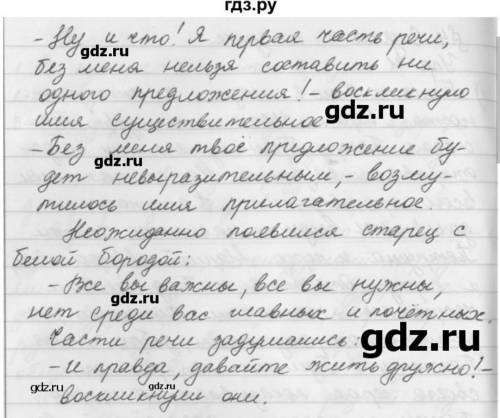 гдз.ру
- Ну и что! Я первая часть речи,
gdz.ru gdz.ru
без меня нельзя составить ни
одного предложения! - воскликнуло
gdz.ru
имя существительное
- Без меня твоё предложение бу-
gdz.ru
дет невыразительным, - возму-
gdz.ru
тилось имя прилагательное.
Неожиданно появился старец с
gdz.ru
белой бородой:
gdz.ru
- Все вы важны, все вы нужны,
нет среди вас главных и почётных.
gdz.ru
Части речи задумались:
gdz.ru
- И правда, давайте жить дружно! -
gdz.ru
воскликнули они.
gdz.ru